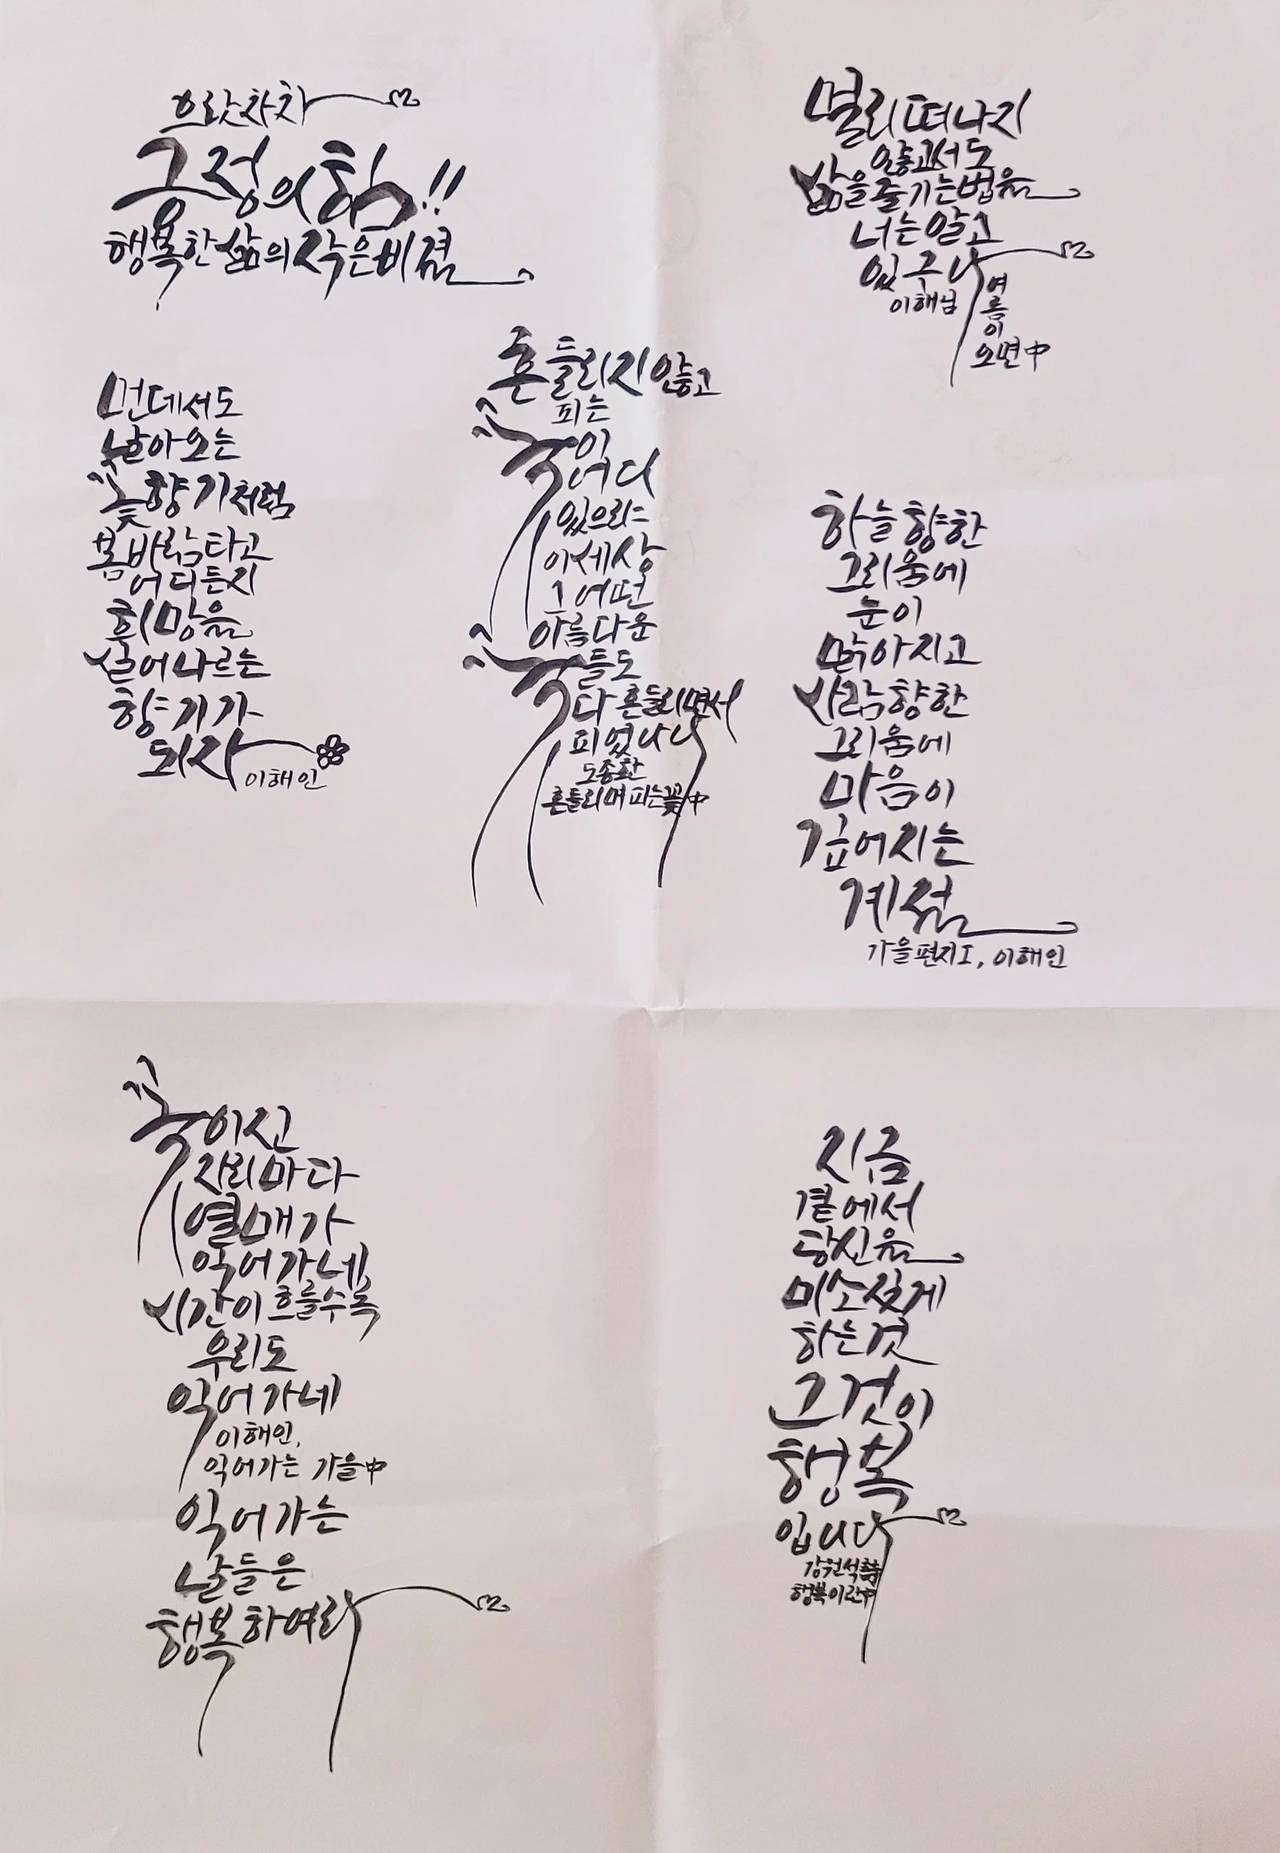 으랏차차
긍정의 힘!!
행복한 삶의 작은 비결
멀리 떠나지
않고서도
삶을 즐기는 법을
너는 알고
있구나
이해인
여름이
오면 中
먼데서도
날아오는
꽃향기처럼
봄바람 타고
어디든지
희망을
실어나르는
향기가
되자
이해인
흔들리지 않고
피는
꽃이
어디
있으랴
이 세상
그 어떤
아름다운
꽃들도
다 흔들리면서
피었나니
도종환
흔들리며 피는 꽃 中
하늘 향한
그리움에
눈이
맑아지고
사람 향한
그리움에
마음이
깊어지는
계절
가을편지I, 이해인
꽃이 진
자리마다
열매가
익어가네
시간이 흐를수록
우리도
익어가네
이해인,
익어가는 가을 中
익어가는
날들은
행복하여라
지금
곁에서
당신을
미소짓게
하는 것
그것이
행복
입니다
강원석 詩
행복이란 中